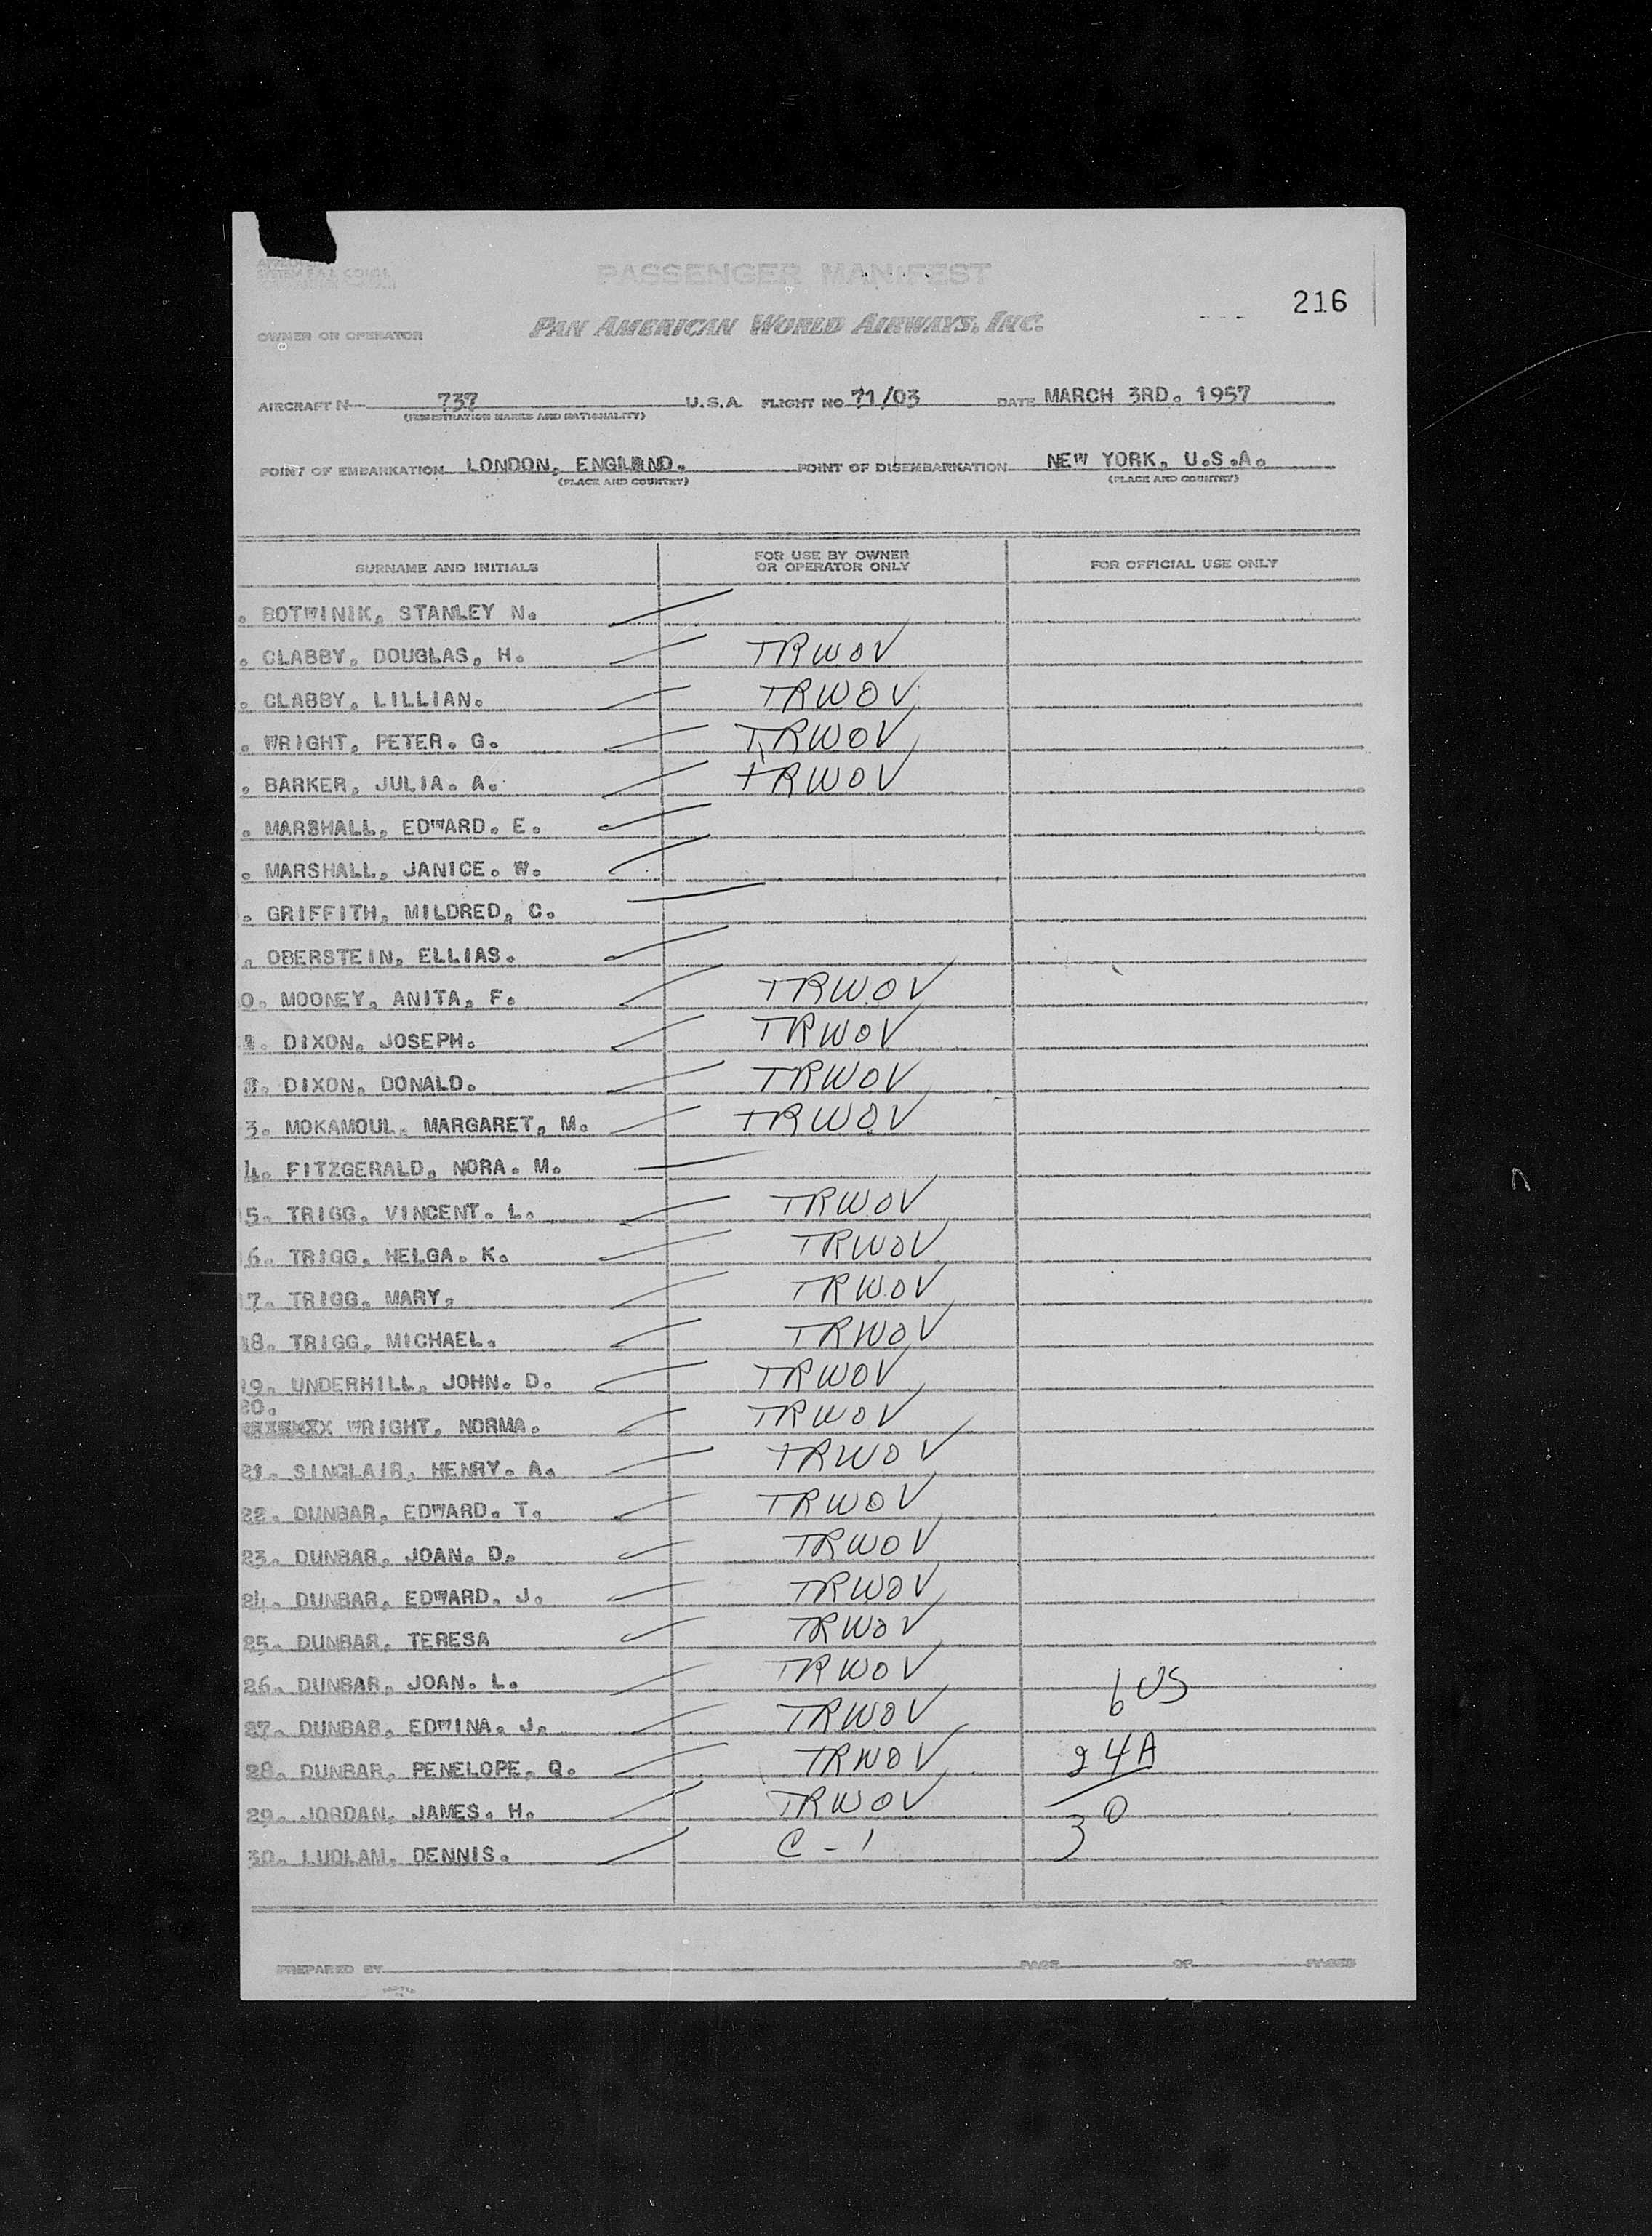 PASSENGER MANIFEST
216
OWNER OR OPERATOR PAN AMERICAN WORLD AIRWAYS, INC.
AIRCRAFT N 737 U.S.A. FLIGHT NO 71/03 DATE MARCH 3RD. 1957
(REGISTRATION MARKS AND NATIONALITY)
POINT OF EMBARKATION LONDON, ENGLAND. POINT OF DISEMBARKATION NEW YORK, U.S.A.
(PLACE AND COUNTRY) (PLACE AND COUNTRY)
SURNAME AND INITIALS FOR USE BY OWNER OR OPERATOR ONLY FOR OFFICIAL USE ONLY
. BOTWINIK, STANLEY N.
. CLABBY, DOUGLAS, H. TRWOV
. CLABBY, LILLIAN. TRWOV
. WRIGHT, PETER. G. TRWOV
. BARKER, JULIA. A. TRWOV
. MARSHALL, EDWARD. E.
. MARSHALL, JANICE. W.
. GRIFFITH, MILDRED, C.
. OBERSTEIN, ELLIAS.
0. MOONEY, ANITA, F. TRWOV
1. DIXON, JOSEPH. TRWOV
2. DIXON, DONALD. TRWOV
3. MOKAMOUL, MARGARET, M. TRWOV
4. FITZGERALD, NORA. M.
15. TRIGG, VINCENT. L. TRWOV
16. TRIGG, HELGA. K. TRWOV
17. TRIGG, MARY. TRWOV
18. TRIGG, MICHAEL. TRWOV
19. UNDERHILL, JOHN. D. TRWOV
20.
WRIGHT, NORMA. TRWOV
21. SINCLAIR, HENRY. A. TRWOV
22. DUNBAR, EDWARD. T. TRWOV
23. DUNBAR, JOAN. D. TRWOV
24. DUNBAR, EDWARD, J. TRWOV
25. DUNBAR, TERESA TRWOV
26. DUNBAR, JOAN. L. TRWOV 6 US
27. DUNBAR, EDWINA. J. TRWOV
28. DUNBAR, PENELOPE. Q. TRWOV 24A
29. JORDAN, JAMES. H. TRWOV 30
30. LUDLAM, DENNIS. C - 1
PREPARED BY PAGE OF PAGES